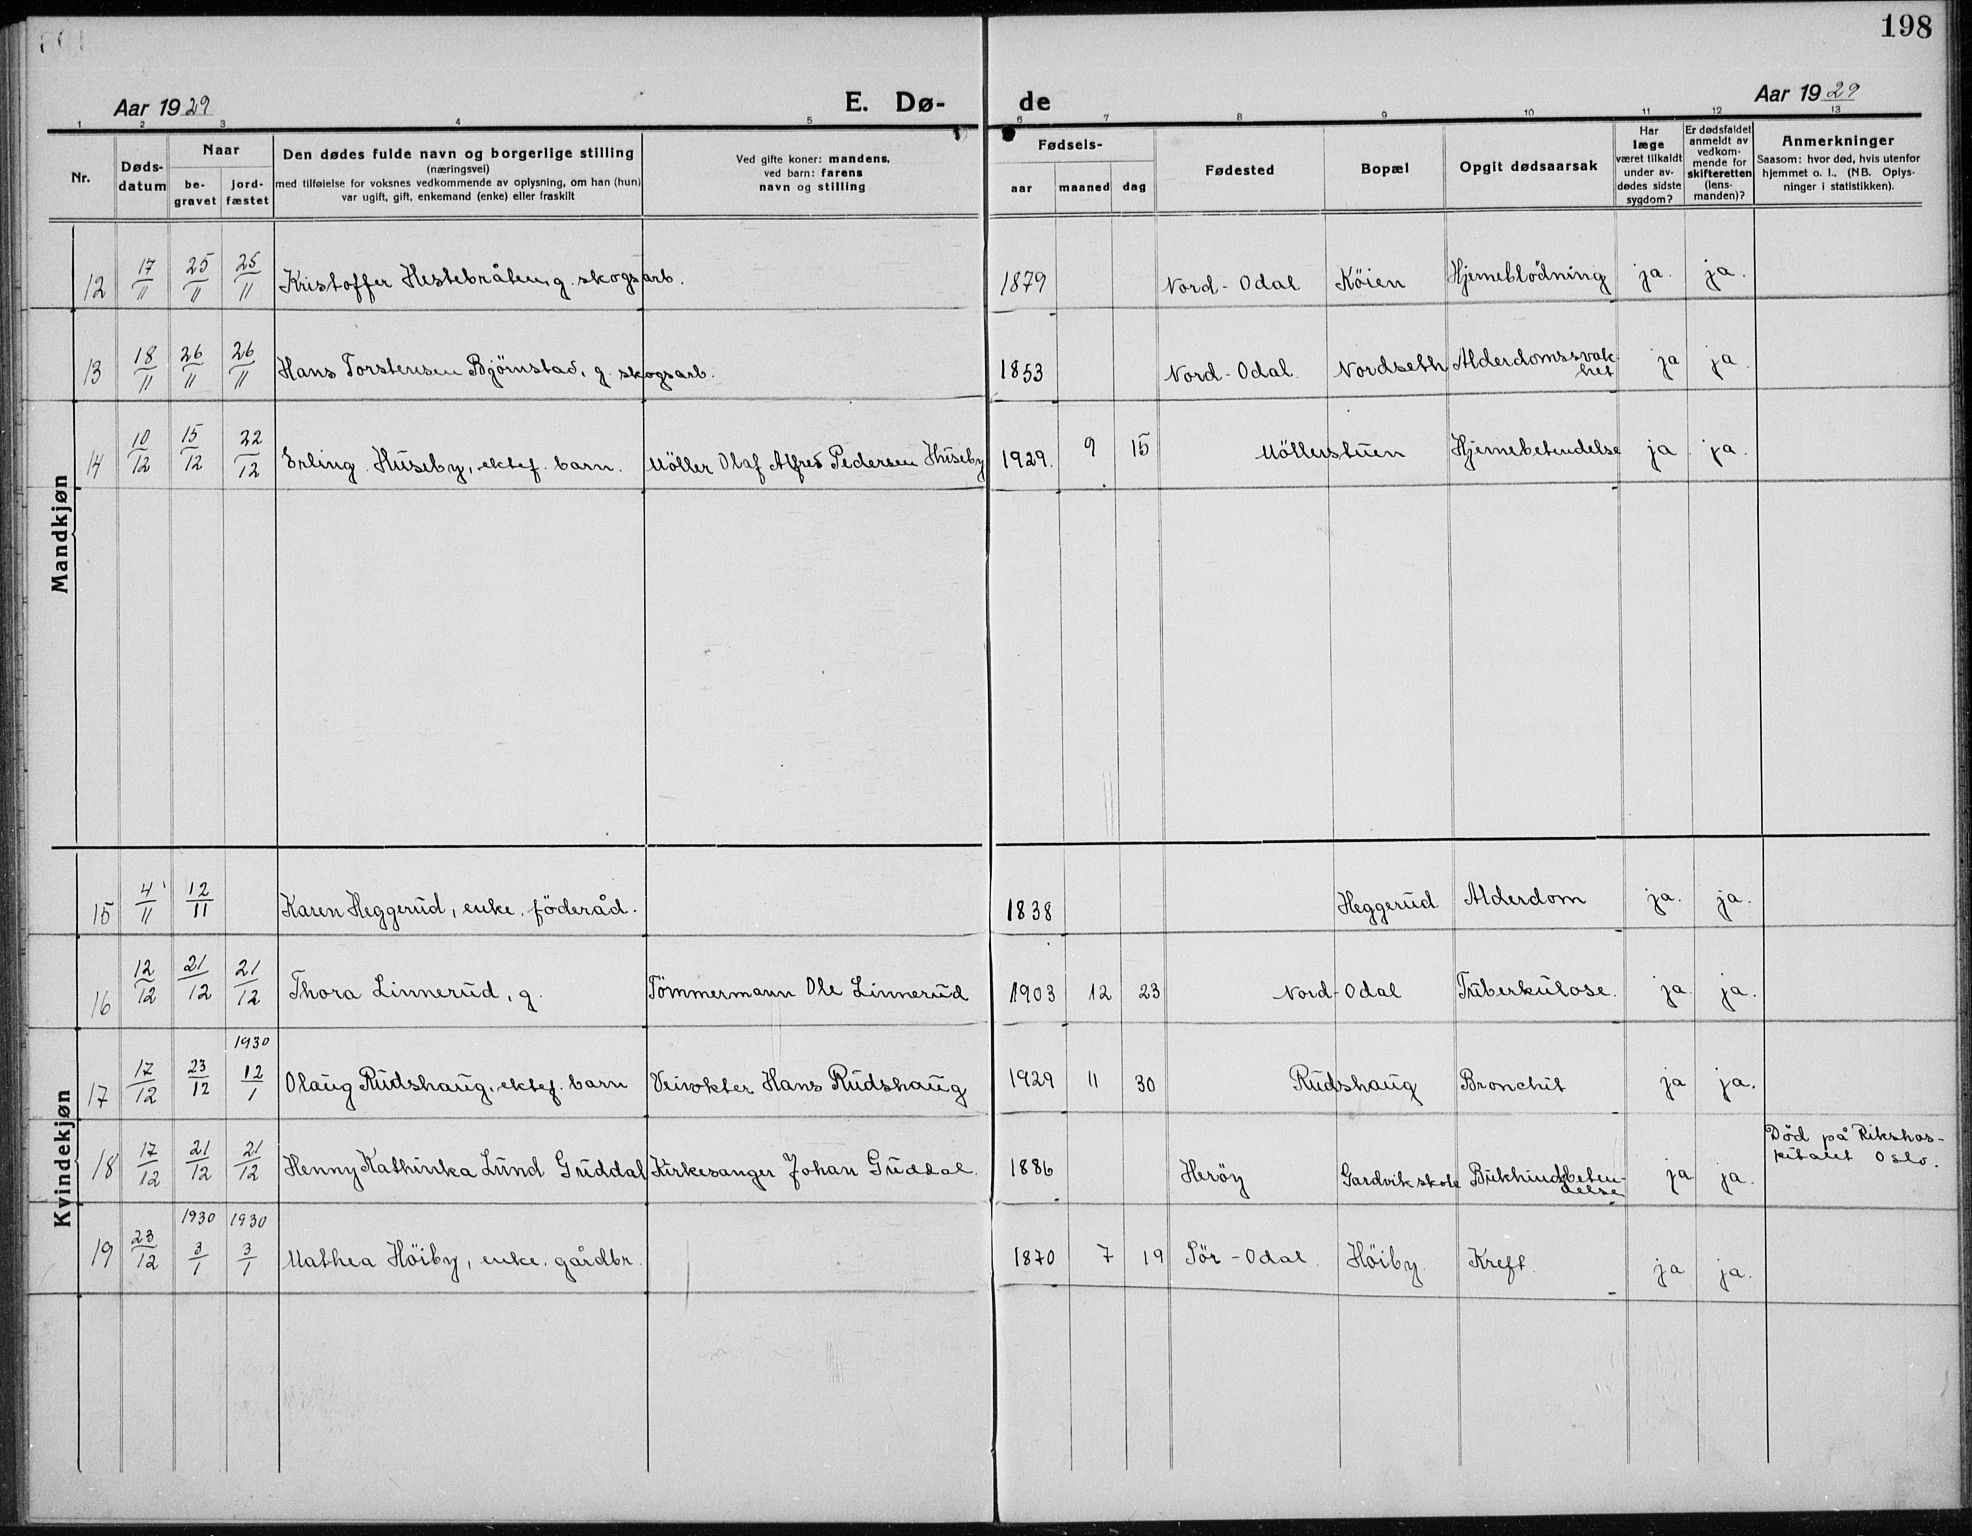 198
Aar 1929 E. Dø- de Aar 1929
1 2 3 4 5 6 7 8 9 10 11 12 13
Nr.
Døds-
datum
Naar
be-
gravet
jord-
fæstet
Den dødes fulde navn og borgerlige stilling
(næringsvei)
med tilføielse for voksnes vedkommende av oplysning, om han (hun)
var ugift, gift, enkemand (enke) eller fraskilt
Ved gifte koner: mandens,
ved barn: farens
navn og stilling
Fødsels-
aar maaned dag
Fødested
Bopæl
Opgit dødsaarsak
Har
læge
været tilkaldt
under av-
dødes sidste
sygdom?
Er dødsfaldet
anmeldt av
vedkom-
mende for
skifteretten
(lens-
manden)?
Anmerkninger
Saasom: hvor død, hvis utenfor
hjemmet o. l., (NB. Oplys-
ninger i statistikken).
Mandkjøn
12 17/11 25/11 25/11 Kristoffer Hestebråten, g. skogsarb. 1879 Nord-Odal Köien Hjerneblödning ja. ja.
13 18/11 26/11 26/11 Hans Torstensen Bjørnstad, g. skogsarb. 1853 Nord-Odal. Nordseth Alderdomssvak-
het ja ja.
14 10/12 15/12 22/12 Erling Huseby, ektef. barn. Möller Olaf Alfred Pedersen Huseby 1929. 9 15 Möllerstuen Hjernebetendelse ja ja.
Kvindekjøn
15 4/11 12/11 Karen Heggerud, enke. föderåd. 1838 Heggerud Alderdom ja. ja.
16 12/12 21/12 21/12 Thora Linnerud, g. Tömmermann Ole Linnerud 1903 12 23 Nord-Odal Tuberkulose. ja. ja.
1930
17 17/12 23/12 12/1 Olaug Rudshaug, ektef. barn Veivokter Hans Rudshaug 1929 11 30 Rudshaug Bronchit ja ja.
18 17/12 21/12 21/12 Henny Kathinka Lund Guddal Kirkesanger Johan Guddal. 1886 Heröy Gardvik skole Bukhindebeten-
delse ja ja. Död på Rikshos-
pitalet Oslo.
1930 1930
19 23/12 3/1 3/1 Mathea Höiby, enke. gårdbr. 1870 7 19 Sör-Odal. Höiby. Kreft. ja ja.